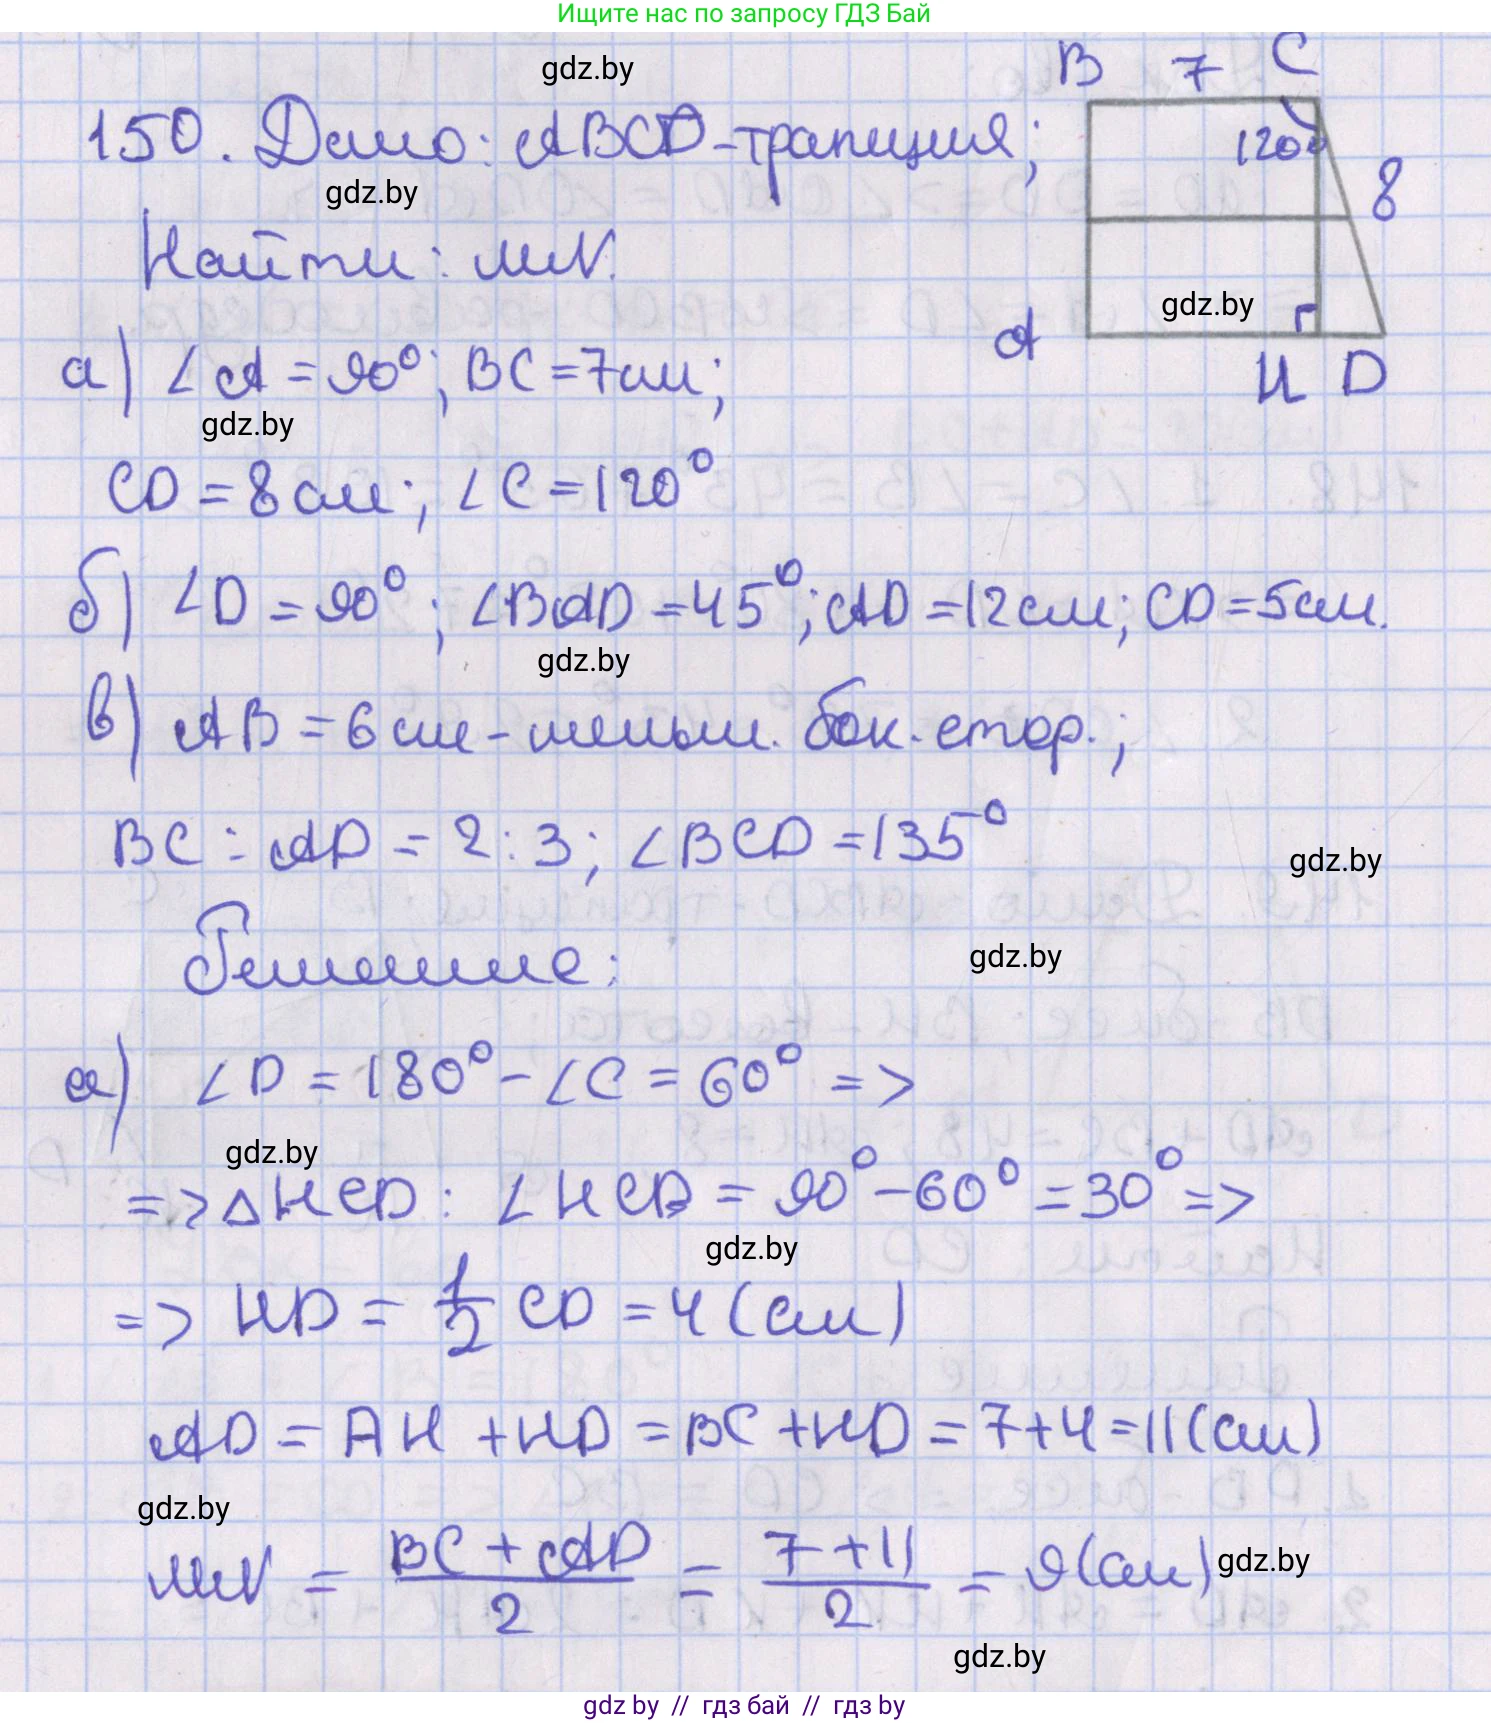 Ищите нас по запросу ГДЗ Бай
gdz.by
B 7 C
150. Дано: ABCD-трапеция;
120°
8
gdz.by
Найти: MN.
gdz.by
A
H D
а) ∠A = 90°; BC = 7см;
gdz.by
CD = 8 см; ∠C = 120°
б) ∠D = 90°; ∠BAD = 45°; AD = 12 см; CD = 5 см.
gdz.by
в) AB = 6 см - меньш. бок. стор.;
BC : AD = 2 : 3; ∠BCD = 135°
gdz.by
Решение:
gdz.by
а) ∠D = 180° - ∠C = 60° =>
gdz.by
=> △HCD: ∠HCD = 90° - 60° = 30° =>
gdz.by
=> HD = 1/2 CD = 4 (см)
AD = AH + HD = BC + HD = 7 + 4 = 11 (см)
gdz.by
MN = (BC + AD)/2 = (7 + 11)/2 = 9 (см)
gdz.by
gdz.by
gdz by // гдз бай // гдз by